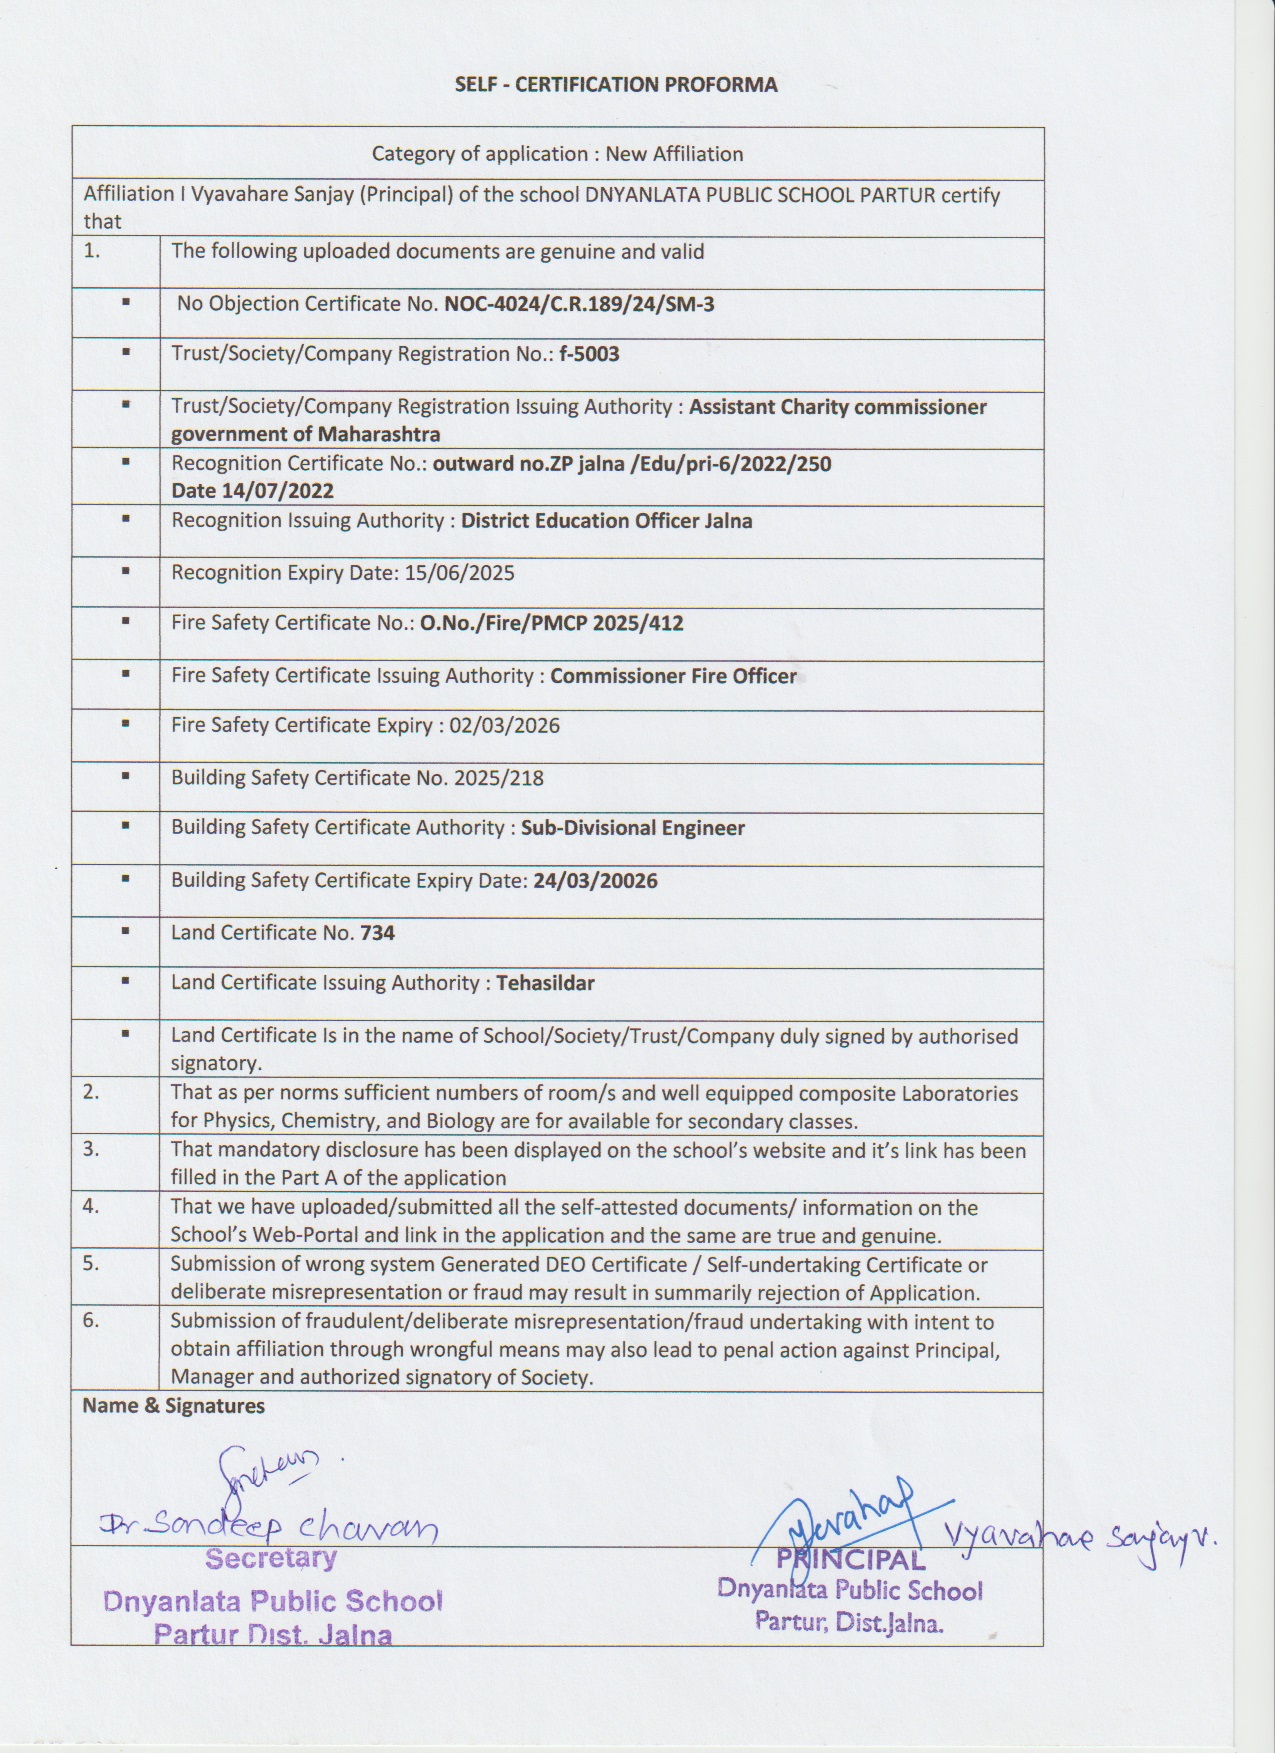 SELF - CERTIFICATION PROFORMA
Category of application : New Affiliation
Affiliation I Vyavahare Sanjay (Principal) of the school DNYANLATA PUBLIC SCHOOL PARTUR certify
that
1. The following uploaded documents are genuine and valid
▪ No Objection Certificate No. NOC-4024/C.R.189/24/SM-3
▪ Trust/Society/Company Registration No.: f-5003
▪ Trust/Society/Company Registration Issuing Authority : Assistant Charity commissioner
government of Maharashtra
▪ Recognition Certificate No.: outward no.ZP jalna /Edu/pri-6/2022/250
Date 14/07/2022
▪ Recognition Issuing Authority : District Education Officer Jalna
▪ Recognition Expiry Date: 15/06/2025
▪ Fire Safety Certificate No.: O.No./Fire/PMCP 2025/412
▪ Fire Safety Certificate Issuing Authority : Commissioner Fire Officer
▪ Fire Safety Certificate Expiry : 02/03/2026
▪ Building Safety Certificate No. 2025/218
▪ Building Safety Certificate Authority : Sub-Divisional Engineer
▪ Building Safety Certificate Expiry Date: 24/03/20026
▪ Land Certificate No. 734
▪ Land Certificate Issuing Authority : Tehasildar
▪ Land Certificate Is in the name of School/Society/Trust/Company duly signed by authorised
signatory.
2. That as per norms sufficient numbers of room/s and well equipped composite Laboratories
for Physics, Chemistry, and Biology are for available for secondary classes.
3. That mandatory disclosure has been displayed on the school’s website and it’s link has been
filled in the Part A of the application
4. That we have uploaded/submitted all the self-attested documents/ information on the
School’s Web-Portal and link in the application and the same are true and genuine.
5. Submission of wrong system Generated DEO Certificate / Self-undertaking Certificate or
deliberate misrepresentation or fraud may result in summarily rejection of Application.
6. Submission of fraudulent/deliberate misrepresentation/fraud undertaking with intent to
obtain affiliation through wrongful means may also lead to penal action against Principal,
Manager and authorized signatory of Society.
Name & Signatures
Dr. Sandeep Chavan
Secretary
Dnyanlata Public School
Partur Dist. Jalna
Vyavahare Sanjay V.
PRINCIPAL
Dnyanlata Public School
Partur, Dist.Jalna.